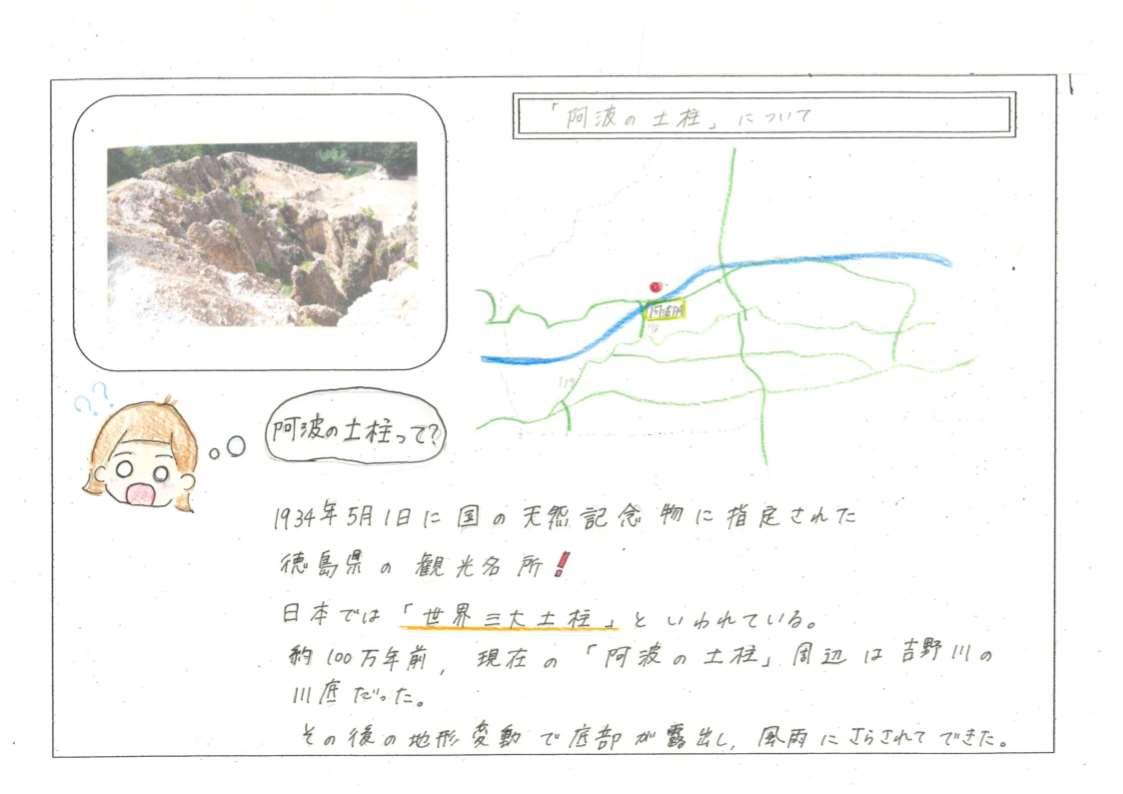 「阿波の土柱」について
??
阿波の土柱って?
1934年5月1日に国の天然記念物に指定された
徳島県の観光名所!
日本では「世界三大土柱」といわれている。
約100万年前,現在の「阿波の土柱」周辺は吉野川の
川底だった。
その後の地形変動で底部が露出し,風雨にさらされてできた。